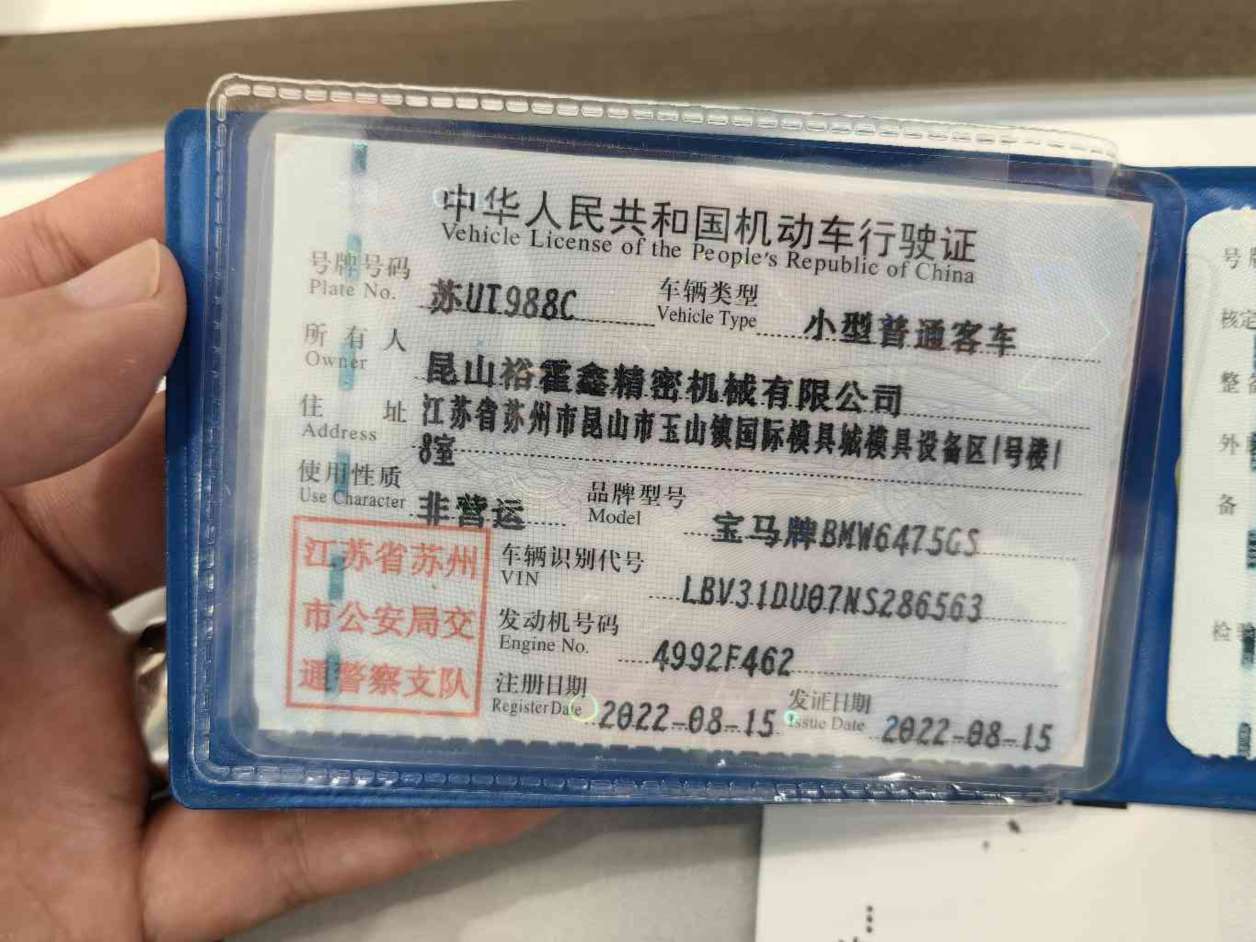 中华人民共和国机动车行驶证
Vehicle License of the People's Republic of China
号牌号码 苏UT988C 车辆类型 小型普通客车
Plate No. Vehicle Type
所有人 昆山裕霍鑫精密机械有限公司
Owner
住址 江苏省苏州市昆山市玉山镇国际模具城模具设备区1号楼1
Address 8室
使用性质 非营运 品牌型号 宝马牌BMW6475GS
Use Character Model
江苏省苏州
市公安局交
通警察支队
车辆识别代号 LBV31DU07NS286563
VIN
发动机号码 4992F462
Engine No.
注册日期 2022-08-15 发证日期 2022-08-15
Register Date Issue Date
号
核定
整
外
备
检